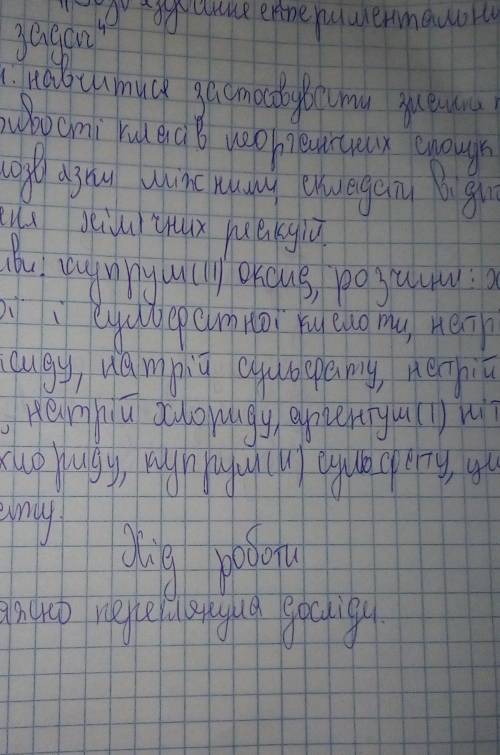 експериментальни
задач"
навчитися застосовувати знання
класів неорганічних сполук
між ними, складати
хімічних реакцій.
купрум(II) оксид, розчини: х
ої і сульфатної кислоти, натрі
сиду, натрій сульфату, натрій
, натрій хлориду, аргентум(I) ніт
хлориду, купрум(II) сульфату, ци
Хід роботи
переглянула досліди.